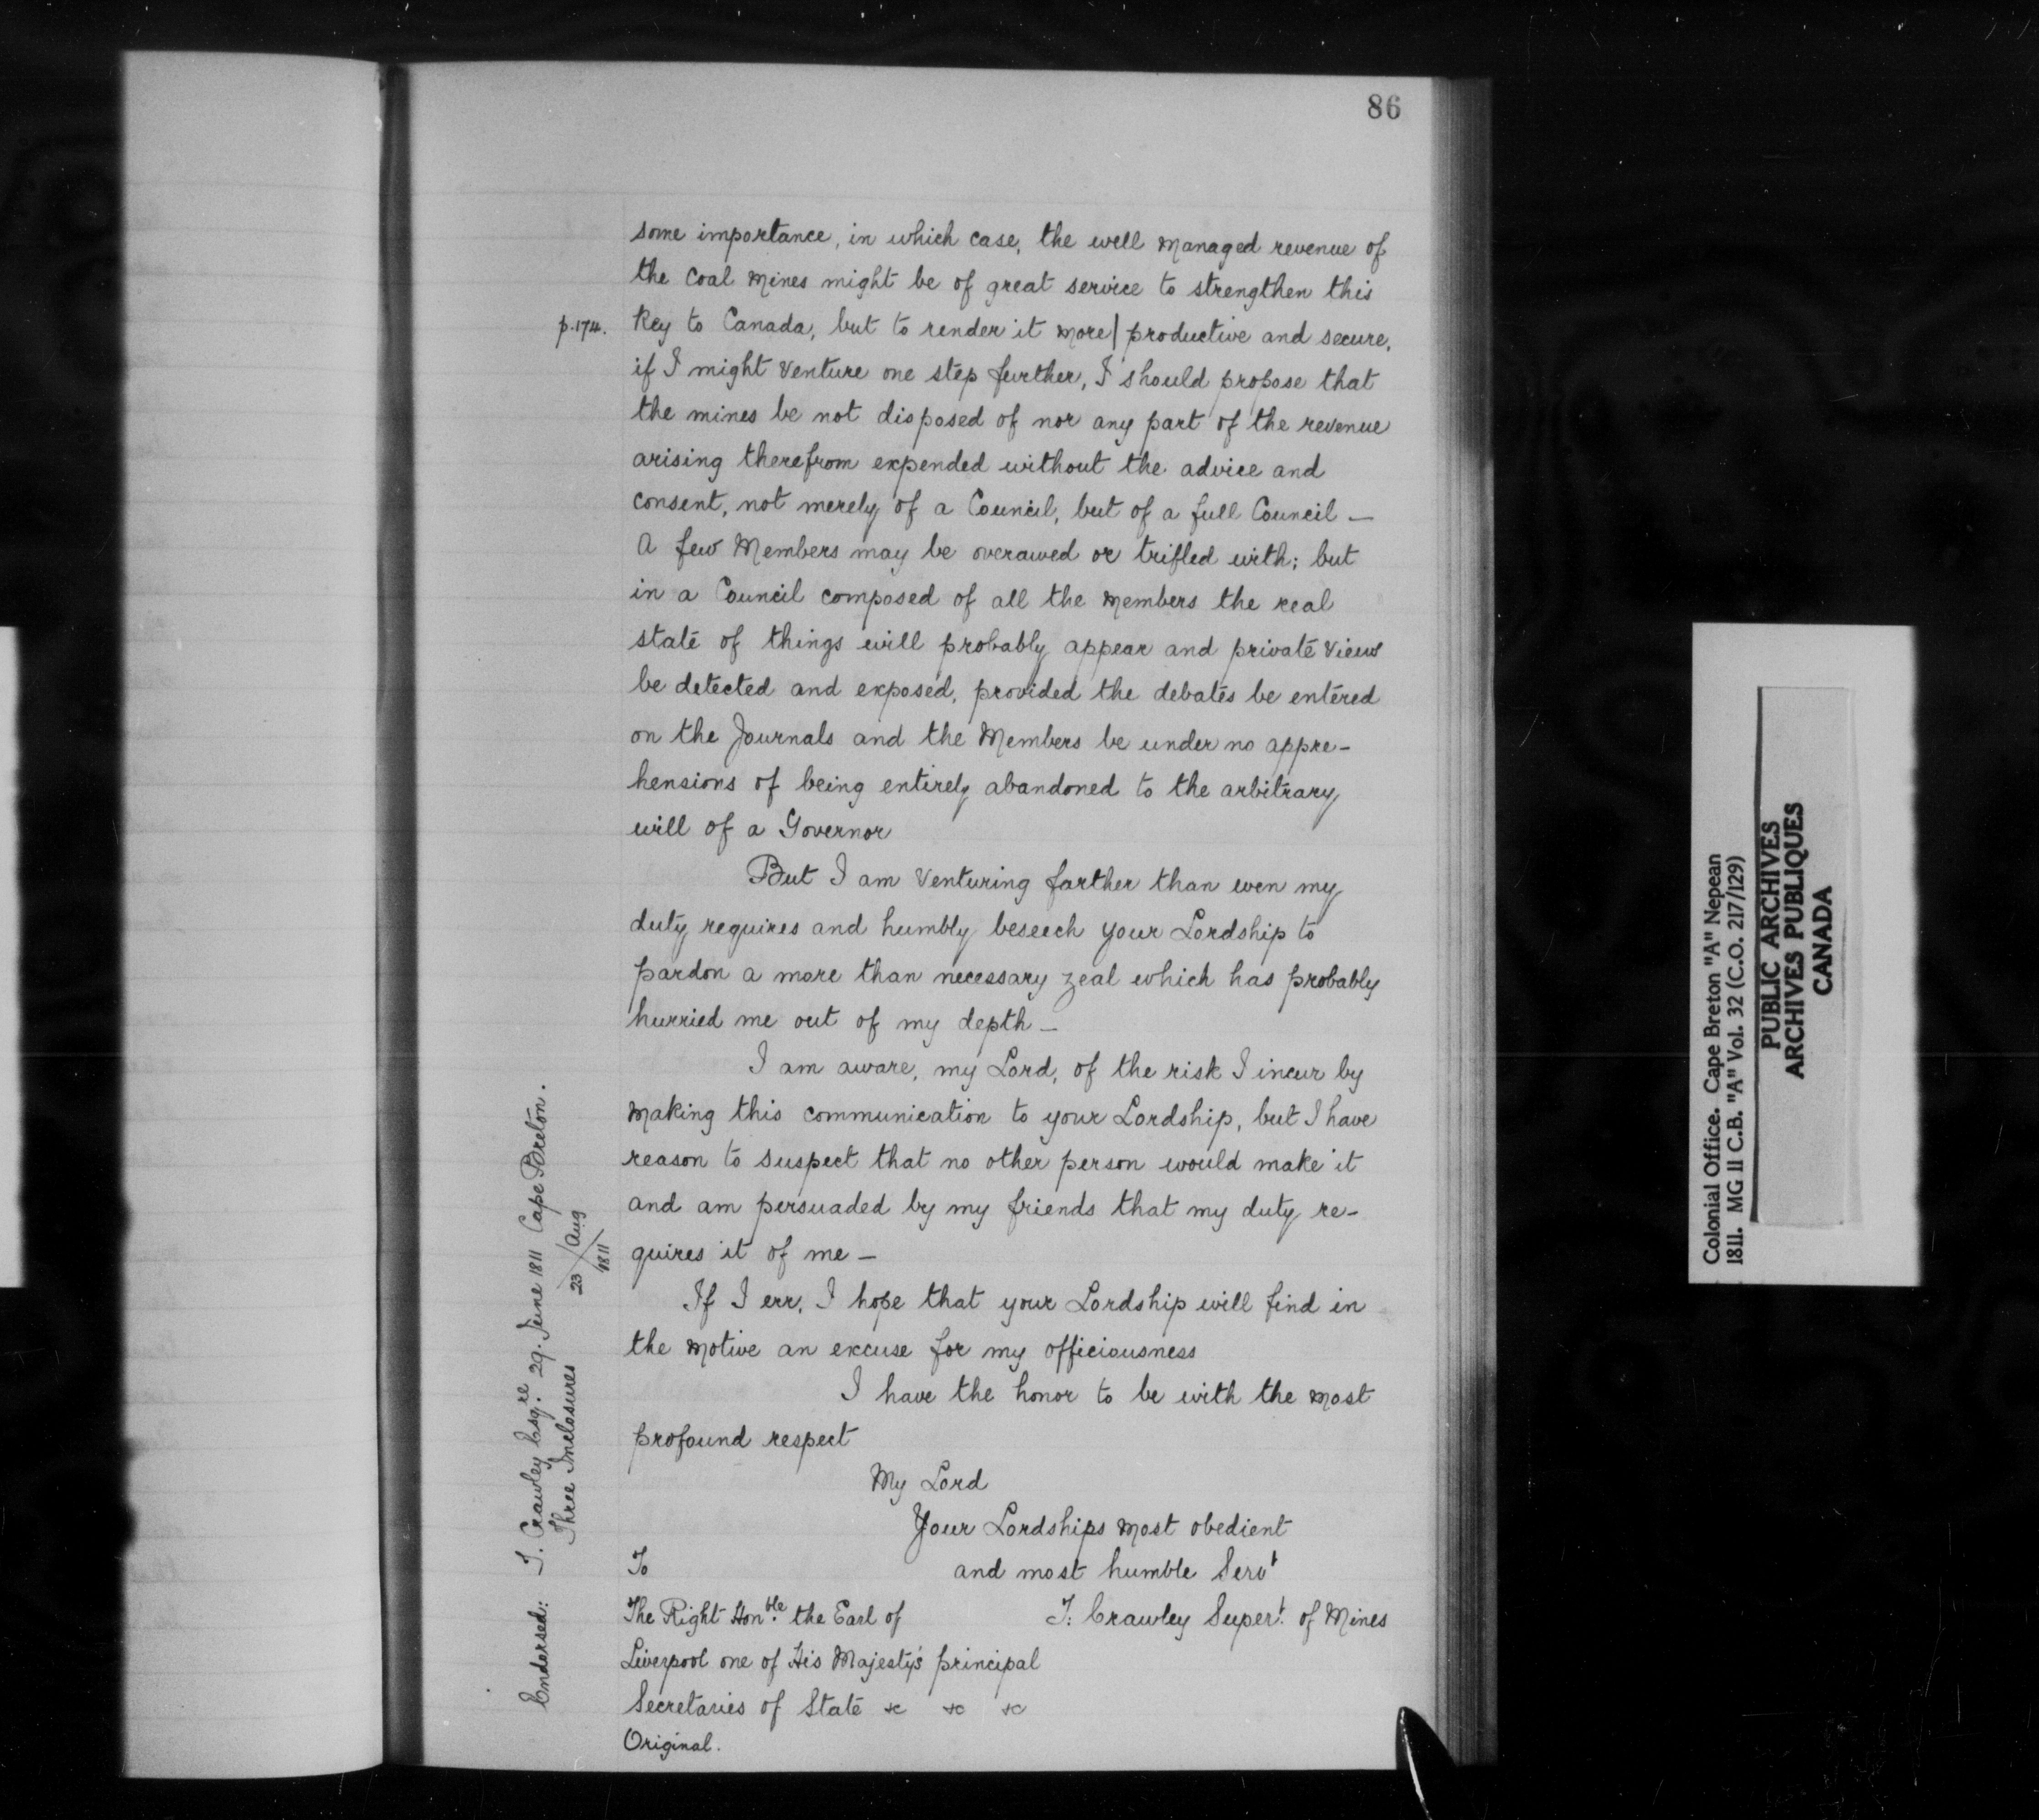 86
some importance, in which case, the well managed revenue of
the Coal Mines might be of great service to strengthen this
p. 174. Key to Canada, but to render it more| productive and secure,
if I might venture one step further, I should propose that
the mines be not disposed of nor any part of the revenue
arising therefrom expended without the advice and
consent, not merely of a Council, but of a full Council —
A few Members may be overawed or trifled with; but
in a Council composed of all the Members the real
state of things will probably appear and private views
be detected and exposed, provided the debates be entered
on the Journals and the Members be under no appre-
hensions of being entirely abandoned to the arbitrary
will of a Governor
But I am venturing farther than even my
duty requires and humbly beseech your Lordship to
pardon a more than necessary zeal which has probably
hurried me out of my depth —
I am aware, my Lord, of the risk I incur by
making this communication to your Lordship, but I have
reason to suspect that no other person would make it
and am persuaded by my friends that my duty re-
quires it of me —
If I err, I hope that your Lordship will find in
the motive an excuse for my officiousness
I have the honor to be with the most
profound respect
My Lord
Your Lordships most obedient
and most humble Servt
T: Crawley Supert. of Mines
To
The Right Honble. the Earl of
Liverpool one of His Majesty's principal
Secretaries of State &c &c &c
Original.
Endorsed: T. Crawley Esqre. 29. June 1811 Cape Breton.
Three Inclosures
23 / Aug / 1811
Colonial Office. Cape Breton "A" Nepean
1811. MG 11 C.B. "A" Vol. 32 (C.O. 217/129)
PUBLIC ARCHIVES
ARCHIVES PUBLIQUES
CANADA